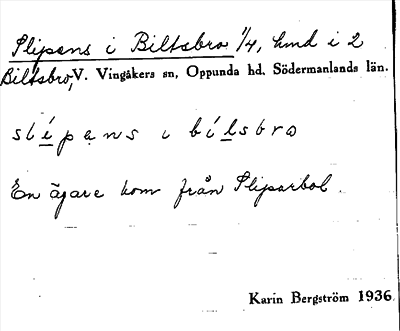 Slipens i Biltsbro 1/4, hmd i 2
Biltsbro, V. Vingåkers sn, Oppunda hd. Södermanlands län.
slipạns ι bilsbrω
En ägare kom från Sliparbol.
Karin Bergström 1936